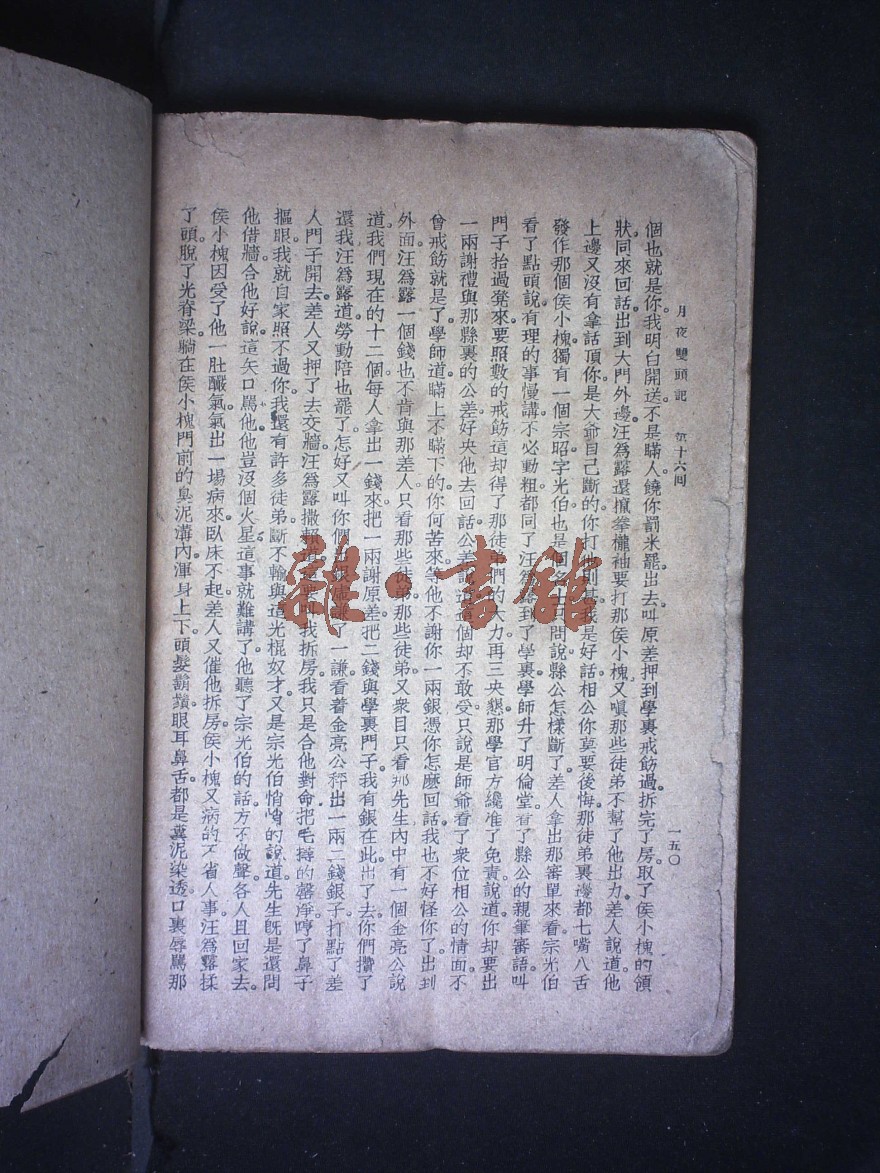 月夜雙頭記 第十六回 一五〇
個也就是你。我明白開送。不是瞞人。饒你罰米罷。出去叫原差押到學裏戒飭過。拆完了房。取了侯小槐的領
狀。同來回話。出到大門外邊。汪爲露還㨄拳攏袖要打那侯小槐。又嗔那些徒弟不幫了他出力。差人說道。他
上邊又沒有拿話頂你。是大爺自己斷的。你打他則甚。我是好話。相公你莫要後悔。那徒弟裏邊都七嘴八舌
發作那個侯小槐。獨有一個宗昭字光伯。也是個名士。問說縣公怎樣斷了。差人拿出那審單來看。宗光伯
看了點頭說。有理的事慢講。不必動粗。都同了汪爲露到了學裏。學師升了明倫堂。看了縣公的親筆審語。叫
門子抬過凳來。要照數的戒飭。這却得了那徒弟們的大力。再三央懇。那學官方纔准了免責。說道。你却要出
一兩謝禮與那縣裏的公差。好央他去回話。公差說道。這個却不敢受。只說是師爺看了衆位相公的情面。不
曾戒飭就是了。學師道。瞞上不瞞下的。你何苦來。等他不謝你一兩銀。憑你怎麽回話。我也不好怪你了。出到
外面。汪爲露一個錢也不肯與那差人。只看那些徒弟。那些徒弟又衆目只看那先生。內中有一個金亮公說
道。我們現在的十二個。每人拿出一錢來。把一兩謝原差。把二錢與學裏門子。我有銀在此。出了去。你們攢了
還我。汪爲露道。勞動陪也罷了。怎好又叫你們出銀。虛謙了一謙。看着金亮公秤出一兩二錢銀子。打點了差
人門子開去。差人又押了去交牆。汪爲露撒賴 我拆房。我只是合他對命。把毛撏的罄淨。哼了鼻子
摳眼。我就自家照不過你。我還有許多徒弟。斷不輸與這光棍奴才。又是宗光伯悄悄的說道。先生旣是還問
他借牆。合他好說。這矢口罵他。他豈沒個火星。這事就難講了。他聽了宗光伯的話。方不做聲。各人且回家去。
侯小槐因受了他一肚臌氣。氣出一場病來。臥床不起。差人又催他拆房。侯小槐又病的不省人事。汪爲露揉
了頭。脫了光脊梁。躺在侯小槐門前的臭泥溝內。渾身上下。頭髮鬍鬚。眼耳鼻舌。都是糞泥染透。口裏辱罵那
雜·書館